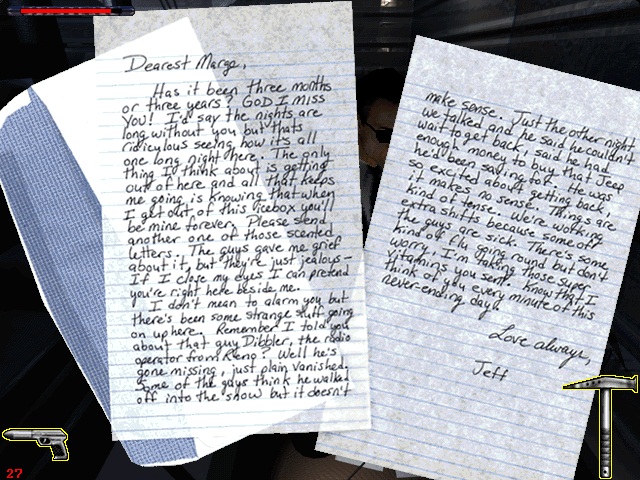 Dearest Marge,
Has it been three months
or three years? GOD I MISS
YOU! I'd say the nights are
long without you but thats
ridiculous seeing how it's all
one long night here. The only
thing I think about is getting
out of here and all that keeps
me going is knowing that when
I get out of this icebox you'll
be mine forever. Please send
another one of those scented
letters. The guys gave me grief
about it, but they're just jealous–
If I close my eyes I can pretend
you're right here beside me.
I don't mean to alarm you but
there's been some strange stuff going
on up here. Remember I told you
about that guy Dibbler, the radio
operator from Reno? Well he's
gone missing, just plain vanished.
Some of the guys think he walked
off into the snow but it doesn't
make sense. Just the other night
we talked and he said he couldn't
wait to get back, said he had
enough money to buy that Jeep
he'd been saving for. He was
so excited about getting back,
it makes no sense. Things are
kind of tense. We're working
extra shifts because some of
the guys are sick. There's some
kind of flu going round but don't
worry, I'm taking those super
vitamins you sent. Know that I
think of you every minute of this
never-ending day.
Love always,
Jeff
27